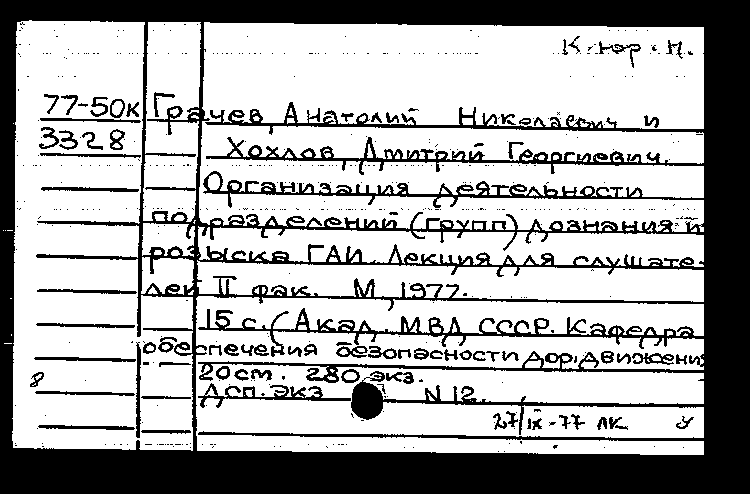 К. юр. н.
77-50к Грачев, Анатолий Николаевич и
3328 Хохлов, Дмитрий Георгиевич.
Организация деятельности
подразделений (групп) дознания и
розыска ГАИ. Лекция для слушате-
лей II фак. М., 1977.
15 с. (Акад. МВД СССР. Кафедра
обеспечения безопасности дор. движения
20см. 280 экз.
8 Дсп. экз N 12.
27/IX-77 ЛК